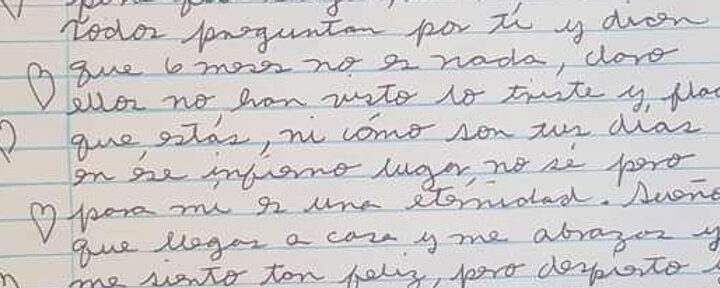 todos preguntan por tí y dicen
que 6 meses no es nada, claro
ellos no han visto lo triste y flac
que estás, ni cómo son tus días
en ése infierno lugar, no sé pero
para mi es una eternidad. Sueño
que llegas a casa y me abrazas y
me siento tan feliz, pero despierto